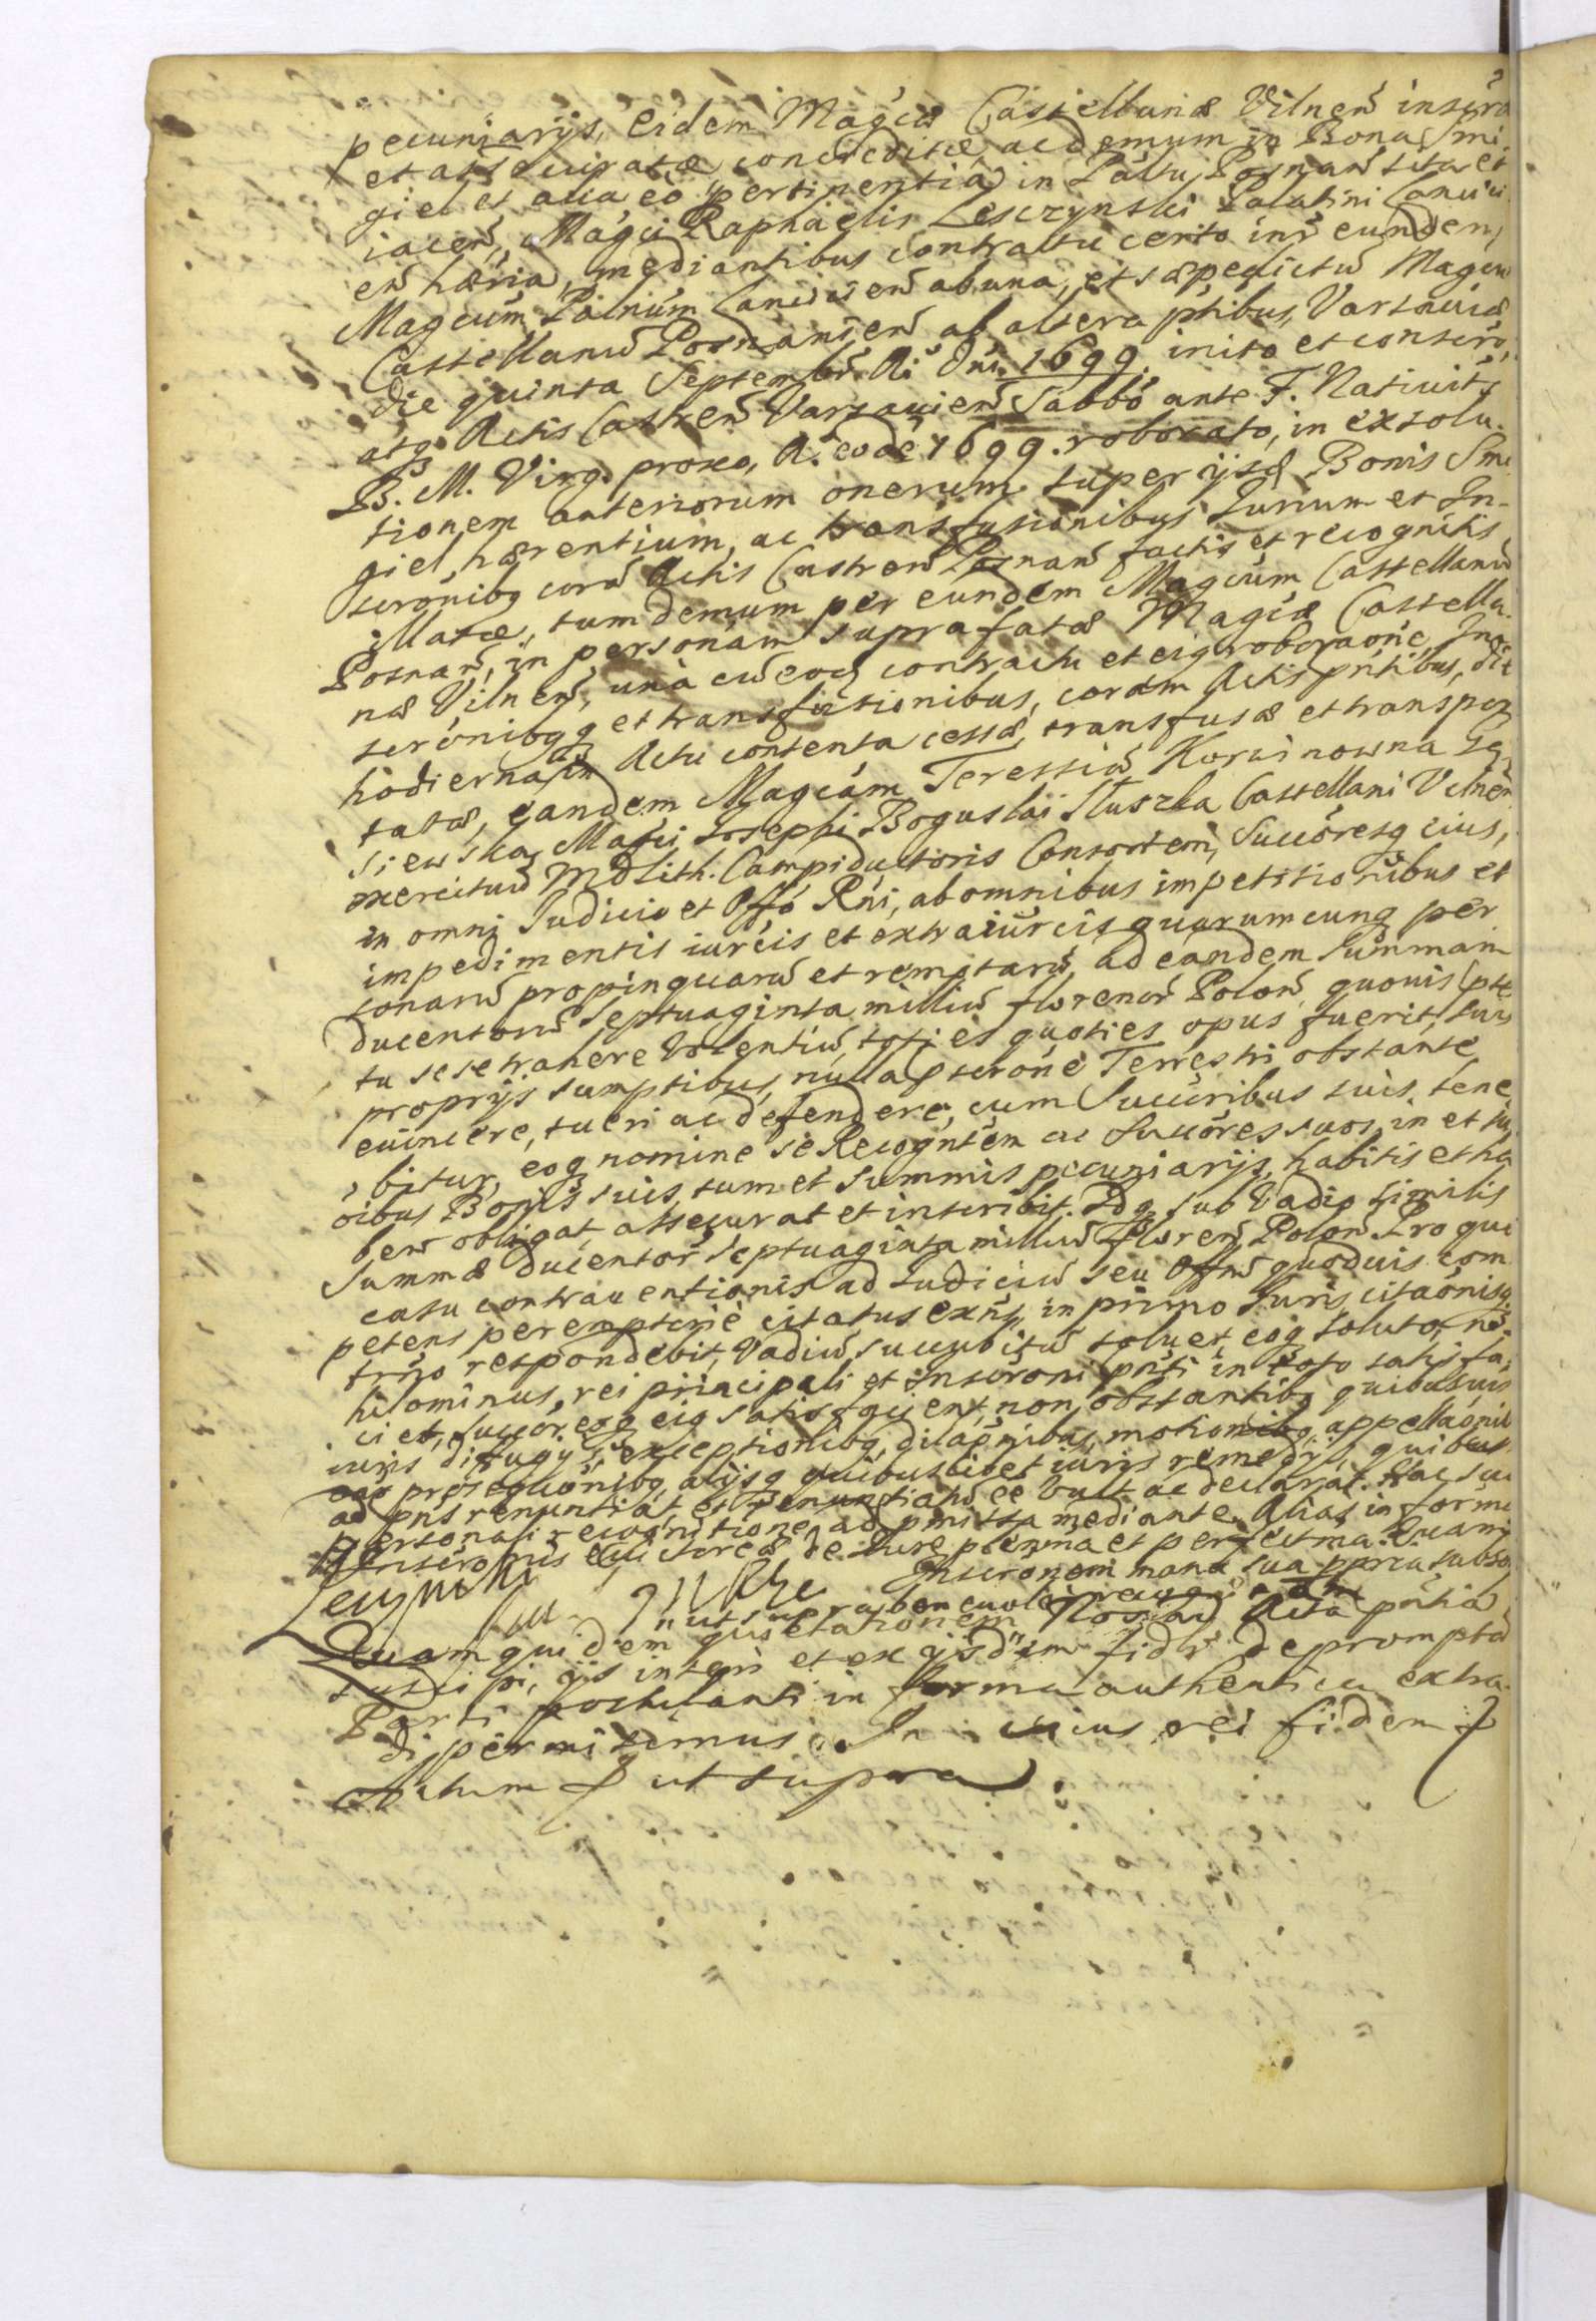 pecuniarijs, eidem Magcæ Castellanæ Vilneñ inscro
et assecuratæ concreditæ, ac demum in Bona Smi,
giel et alia eò pertinentia in Pałtu Posnań sita et
iaceñ, Magci Raphaelis Lesczynski Palatini Lancici
eñ hæria, mediantibus contractu certo inr̃ eundem
Magcum Palnum Lancicieñ ab una, et sæpedictũ Magcũ
Castellanũ Posnanieñ ab altera ptibus, Varsauiæ
die quinta Septembr̃ Ai Dni 1699 inito et conscro,
atq Actis Castreñ Varsauieñ Sabbo ante F. Natiuit̃
B. M. Virg. proxo, A. eode 1699. roborato, in exsolu-
tionem anteriorum onerum super ijsd Bonis Smi
giel hærentium, ac transfusionibus Iurium et In-
scronibq corã Actis Castreñ Posnañ factis et recognitis
illatæ, tum demum per eundem Magcum Castellanũ
Posnañ, in personam suprafatæ Magcæ Castella-
næ Vilneñ, unà cũ eod contractu et eiq roboraone, In-
scronibqq et transfusionibus, coram Actis pntibus, die
hodierna, in Actu contenta cessæ, transfusæ et transpor
tatæ, eandem Magcam Teressiã Korwinowna Gą
siewska, Magci Iosephi Boguslai Sluszka Castellani Vilneñ
exercituũ MDLith. Campiductoris Consortem, Succoresq eius,
in omni Iudicio et Offo Rni, ab omnibus impetitionibus et
impedimentis iurcis et extraiurcis quarumcunq per
sonarũ propinquarũ et remotarũ, ad eandem Summam
ducentorũ septuaginta milliũ florenor̃ Polon̄ quouis Ptx
tu sese trahere volentiũ, toties quoties opus fuerit, suis
proprijs sumptibus, nulla Pscrone Terrestri obstante,
euincere, tueri ac defendere, cum Succoribus suis tene
bitur, eoq nomine se Recogntem ac Succores suos, in et su
oibus Bonis suis, tum et Summis pecuniarijs, habitis et ha
beñ obligat, assecurat et inscribit. Idq sub Vadio similis
Summæ ducentor̃ septuaginta milliũ floreñ Polon. Pro quo
casu contrauentionis ad Iudiciũ seu Offm quoduis com
petens peremptorie citatus exñs, in primo Iuris, citaonisq
trno respondebit, Vadiũ succubitũ soluet, eoq soluto, ni-
hilominus, rei principali et Inscroni pnti in toto satisfa,
ciet, Succoresq eiq satisfacient, non obstantibq quibusuis
iuris diffugijs, exceptionibq, dilaonibus, motionibq, appellaonib
prosequonibq, alijsq quibuslibet iuris remedijs, quibus
ad pns renuntiat, et renuntiatũ ee vult ac declarat. Hac sua
personali recognitione, ad pmissa mediante. Alias in forma
Inscronis de Iure plenma et perfectma. Quam
Inscronem manu sua ppria subscr
ut supra
Quam quidem quietationem Nos ad Acta pntia
suscipi, ijs inseri et ex ijsdem fidr̃ depromptã
Parti postulanti in forma authentica extra-
di permisimus. In cuius rei fidem &
Actum & ut supra.